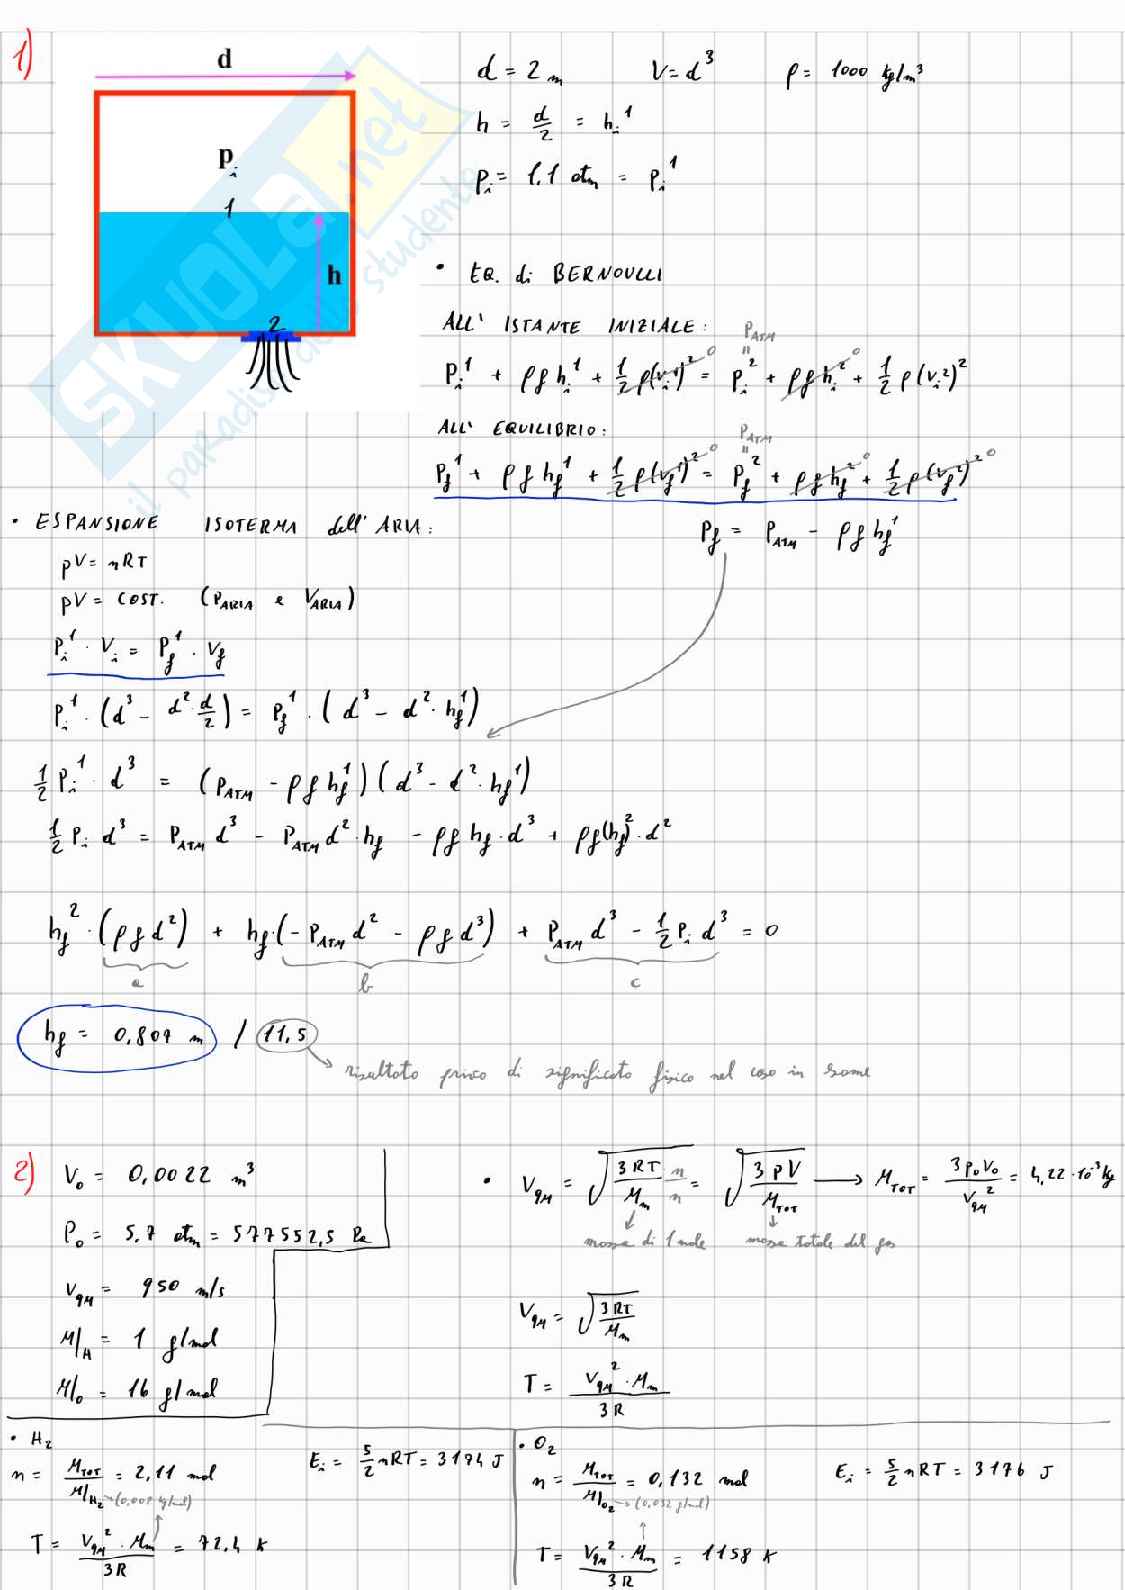 1)
d
d = 2 m V = d³ ρ = 1000 kg/m³
h = d/2 = hᵢ¹
pᵢ = 1,1 atm = pᵢ¹
pᵢ
1
h
2
SKUOLA.net
il paradiso dello studente
• EQ. di BERNOULLI
ALL' ISTANTE INIZIALE: P_ATM
Pᵢ¹ + ρghᵢ¹ + ½ρ(vᵢ¹)² ⁰ = Pᵢ² + ρghᵢ² ⁰ + ½ρ(vᵢ²)²
ALL' EQUILIBRIO: P_ATM
P_f¹ + ρgh_f¹ + ½ρ(v_f¹)² ⁰ = P_f² + ρgh_f² ⁰ + ½ρ(v_f²)² ⁰
P_f = P_ATM - ρgh_f¹
• ESPANSIONE ISOTERMA dell' ARIA:
pV = nRT
pV = COST. (P_ARIA e V_ARIA)
Pᵢ¹ · Vᵢ = P_f¹ · V_f
Pᵢ¹ · (d³ - d² · d/2) = P_f¹ · (d³ - d² · h_f¹)
½ Pᵢ¹ · d³ = (P_ATM - ρgh_f¹)(d³ - d² · h_f¹)
½ Pᵢ d³ = P_ATM d³ - P_ATM d² · h_f - ρgh_f · d³ + ρg(h_f)² · d²
h_f² · (ρgd²) + h_f · (-P_ATM d² - ρgd³) + P_ATM d³ - ½ Pᵢ d³ = 0
a b c
h_f = 0,809 m / 11,5
risultato privo di significato fisico nel caso in esame
2)
V₀ = 0,0022 m³
P₀ = 5,7 atm = 577552,5 Pa
V_qM = 950 m/s
M/_H = 1 g/mol
M/_O = 16 g/mol
• V_qM = √(3RT/M_m · n/n) = √(3pV/M_TOT) → M_TOT = 3p₀V₀/V_qM² = 4,22·10⁻³ kg
massa di 1 mole massa totale del gas
V_qM = √(3RT/M_m)
T = V_qM² · M_m / 3R
• H₂
n = M_TOT / M/_H₂ = 2,11 mol
(0,002 kg/mol)
T = V_qM² · M_m / 3R = 72,4 K
Eᵢ = 5/2 nRT = 3174 J
• O₂
n = M_TOT / M/_O₂ = 0,132 mol
(0,032 g/mol)
T = V_qM² · M_m / 3R = 1158 K
Eᵢ = 5/2 nRT = 3176 J